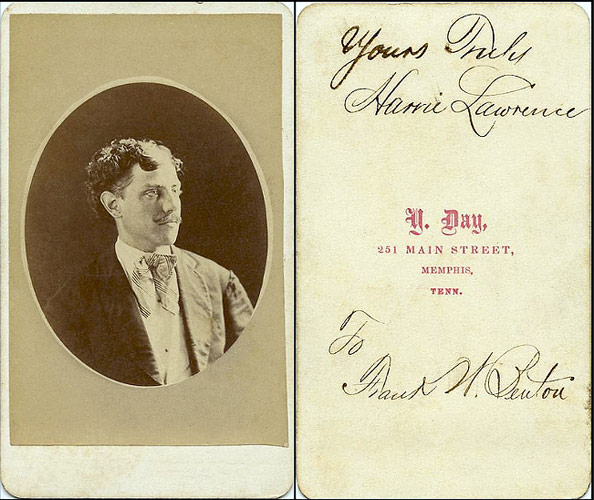 Yours Truly
Harrie Lawrence
Y. Day,
251 MAIN STREET,
MEMPHIS,
TENN.
To
Frank W. Benton